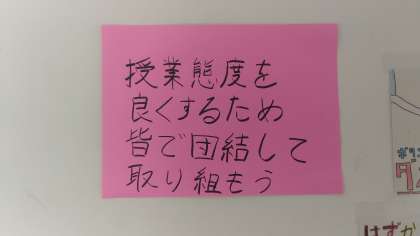 授業態度を
良くするため
皆で団結して
取り組もう
はずか